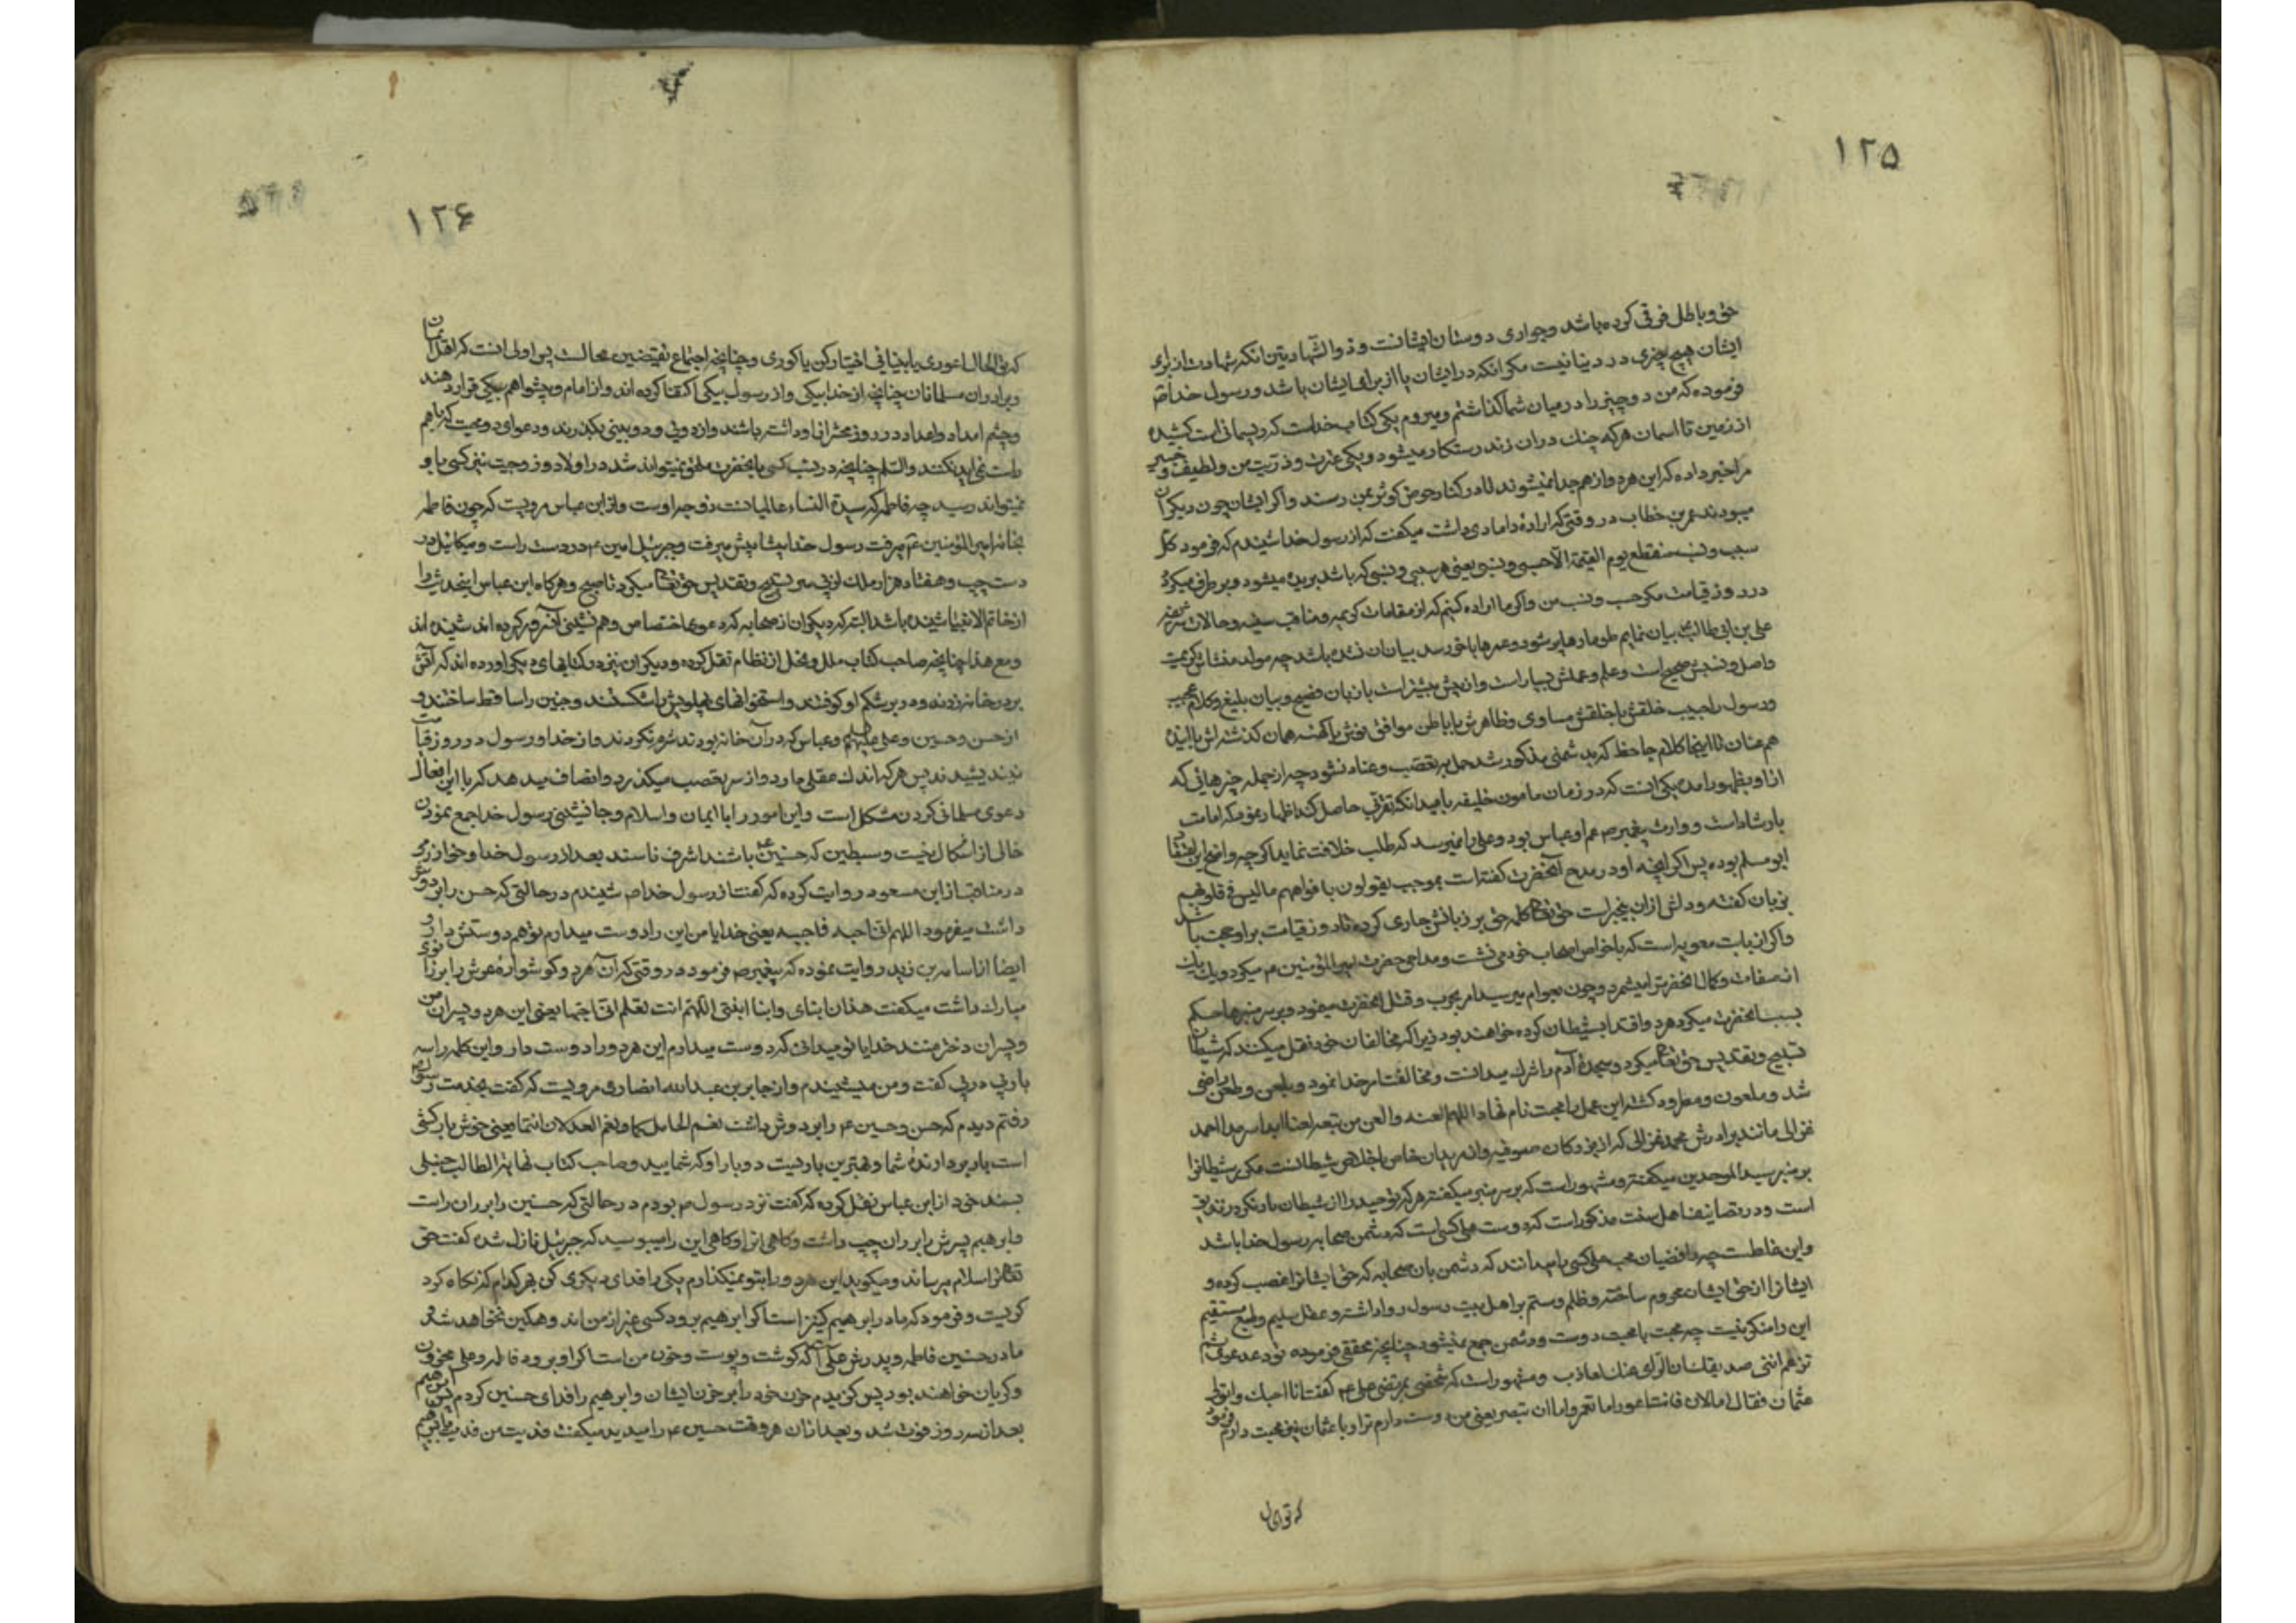 ۱۲۵
حق و باطل فرقی کرده باشد و جواری دوستان ایشانست و ذو الشهادتین انکه شهادت از برای
ایشان هیچ چیزی در دنیا نیست مکر انکه در ایشان یا از برای ایشان باشد و رسول خدا ص
فرموده که من دو چیز را در میان شما کذاشتم و میروم یکی کتاب خداست که ریسمانی است کشیده
از زمین تا اسمان هر که چنك در ان زند رستکار میشود و یکی عترت و ذریت من و لطیف و خبیر
مرا خبر داده که این هر دو از هم جدا نمیشوند تا در کنار حوض کوثر بمن رسند و اکر ایشان چون دیکران
میبودند عمر بن خطاب در وقتی که اراده دامادی داشت میکفت که از رسول خدا شنیدم که فرمود کل
سبب و نسب منقطع یوم القیمة الا حسبی و نسبی یعنی هر سببی و نسبی که باشد بریده میشود و بر طرف میکردد
در روز قیامت مکر حسب و نسب من و اکر ما اراده کنیم که از مقامات کریمه و مناقب سنیه و حالات شریفه
علی بن ابی طالب ع بیان نمایم طومارها پر شود و عمرها باخر رسد بیان ان نشده باشد چه مولد منشاش کریمست
و اصل و نسبش صحیح است و علم و عملش بسیار است و از پیش بیشتر است با زبان فصیح و بیان بلیغ و کلام عجیب
و رسول را حبیب خلقش با خلقش مساوی و ظاهرش با باطن موافق
هم عنان تا اینجا کلام جاحظ که بدشمنی مذکور شد حمل بر تعصب و عناد نشود چه از جمله چیزهائی که
از او بظهور امده یکی انست که در زمان مامون خلیفه بامید انکه تقربی حاصل کند اظهار نمود که امامت
بارث است و وارث پیغمبر ص عم او عباس بود و علی را نمیرسد که طلب خلافت نماید اکر چه واضع این اعتقاد
ابو مسلم بوده پس اکر انچه او در مدح آنحضرت کفته است بموجب یقولون بافواههم ما لیس فی قلوبهم
بزبان کفته و دلش از ان بیخبر است حق تعالی کلمه حق بر زبانش جاری کرده تا در روز قیامت بر او حجت باشد
و اکر از بابت معویه است که با خواص اصحاب خود می نشست و مداحی حضرت امیر المؤمنین ع میکرد و یك یك
از صفات و کمال انحضرت را میشمرد و چون بعوام میرسید امر بحرب و قتل انحضرت مینمود و بر سر منبرها حکم
بسب انحضرت میکرد هر دو اقتدا بشیطان کرده خواهند بود زیرا که مخالفان خود نقل میکنند که شیطان
تسبیح و تقدیس حق تعالی میکرد و سجده آدم را شرك میدانست و مخالفت امر خدا نمود و بلعن و طعن راضی
شد و ملعون و مطرود کشته این عمل را محبت نام نهاد اللهم العنه و العن من تبعه لعنا ابدا سرمدا احمد
غزالی مانند برادرش محمد غزالی که از بزرکان صوفیه و از مریدان خاص باخلاص شیطانست مکرر شیطانرا
بر منبر سید الموحدین میکفته و مشهور است که بر سر منبر میکفته هر که توحید را از شیطان یاد نکیرد زندیق
است و در تصانیف اهل سنت مذکور است که دوست علی کسی است که دشمن صحابه رسول خدا باشد
و این غلطست چه رافضیان محب علی کسی را میدانند که دشمن بان صحابه که حق ایشانرا غصب کرده و
ایشانرا از حق ایشان محروم ساخته و ظلم و ستم بر اهل بیت رسول روا داشته و عقل سلیم و طبع مستقیم
این را منکر نیست چه محبت با محبت دوست و دشمن جمع نمیشود چنانچه محققی فرموده تود عدوی ثم
تزعم اننی صدیقك ان الرای عنك لعاذب و مشهور است که شخصی بمرتضی علی ع کفت انا احبك و اتولی
عثمان فقال اما الان فانت اعور اما تعم و اما ان تبصر یعنی من دوست دارم ترا و با عثمان نیز محبت دارم فرمود
که تو الحال
۱۲۶
که تو الحال اعوری یا بینائی اختیار کن یا کوری و چنانچه اجتماع نقیضین محالست پس اولی انست که اهل ایمان
و برادران مسلمانان چنانچه از خدا بیکی و از رسول بیکی اکتفا کرده اند و از امام و پیشوا هم بیکی قرار دهند
و چشم امداد و اعداد در روز محشر از او داشته باشند و از دوئی و دو بینی بکذرند و دعوای دو محبت که با هم
راست نمی اید نکنند و السلم چنانچه در نسب کسی بانحضرت ملحق نمیتواند شد در اولاد و زوجیت نیز کسی باو
نمیتواند رسید چه فاطمه که سیدة النساء عالمیانست زوجه اوست و از ابن عباس مرویست که چون فاطمه
بخانه امیر المؤمنین ع میرفت رسول خدا پیشاپیش میرفت و جبرئیل امین ع در دست راست و میکائیل در
دست چپ و هفتاد هزار ملك از پی سر تسبیح و تقدیس حق تعالی میکردند تا صبح و هر کاه ابن عباس اینحدیث را
از خاتم الانبیا شنیده باشد البته که دیکران از صحابه که دعوی اختصاص و هم نشینی آنسرور کرده اند شنیده اند
و مع هذا چنانچه صاحب کتاب ملل و نحل از نظام نقل کرده و دیکران نیز در کتابهای دیکر اورده اند که آتش
بر در خانه زدند و در بر شکم او کوفتند و استخوانهای پهلویش را شکستند و جنین را ساقط ساختند و
از حسن و حسین و علی علیهم السلم و عباس که در آن خانه بودند شرم نکردند و از خدا و رسول در روز قیامت
نیندیشیدند پس هر که اندك عقلی دارد و از سر تعصب میکذرد و انصاف میدهد که با این افعال
دعوی مسلمانی کردن مشکل است و این امور را با ایمان و اسلام و جانشینی رسول خدا جمع نمودن
خالی از اشکال نیست و سبطین که حسنین ع باشند اشرف ناسند بعد از رسول خدا
در مناقب از ابن مسعود روایت کرده که کفت از رسول خدا ص شنیدم در حالتی که حسن را بر دوش
داشت میفرمود اللهم انی احبه فاحبه یعنی خدایا من این را دوست میدارم تو هم دوستش دار و
ایضا از اسامه بن زید روایت نموده که پیغمبر ص فرمود در وقتی که آن هر دو کوشواره عرش را بر زانوی
مبارك داشت میکفت هذان ابنای و ابنا ابنتی اللهم انت تعلم انی احبهما یعنی این هر دو پسران من
و پسران دختر منند خدایا تو میدانی که دوست میدارم این هر دو را دوست دار و این کلمه را سه
بار پی در پی کفت و من میشنیدم و از جابر بن عبد الله انصاری مرویست که کفت بخدمت رسول ص
رفتم دیدم که حسن و حسین ع را بر دوش داشت نعم الحامل کما و نعم العدلان انتما یعنی خوش بارکشی
است بار بردارنده شما و بهترین باردیست دو بار او که شمایید و صاحب کتاب نهایة الطالب حنبلی
بسند خود از ابن عباس نقل کرده که کفت نزد رسول ص بودم در حالتی که حسنین را بر ران راست
و ابرهیم پسرش را بر ران چپ داشت و کاهی انرا و کاهی این را میبوسید که جبرئیل نازل شده کفت حق
تعالی ترا سلام میرساند و میکوید این هر دو را بتو نمیکذارم یکی را فدای دیکری کن بهر کدام که نکاه کرد
کریست و فرمود که مادر ابرهیم کنیز است اکر ابرهیم برود کسی غیر از من اندوهکین نخواهد شد و
مادر حسنین فاطمه و پدرش علی است که کوشت و پوست و خون من است اکر او برود فاطمه و علی محزون
و کریان خواهند بود پس کزیدم حزن خود را بر حزن ایشان و ابرهیم را فدای حسنین کردم پس ابرهیم
بعد از سه روز فوت شد و بعد از ان هر وقت حسین ع را میدید میکفت فدیت من فدیته بابرهیم